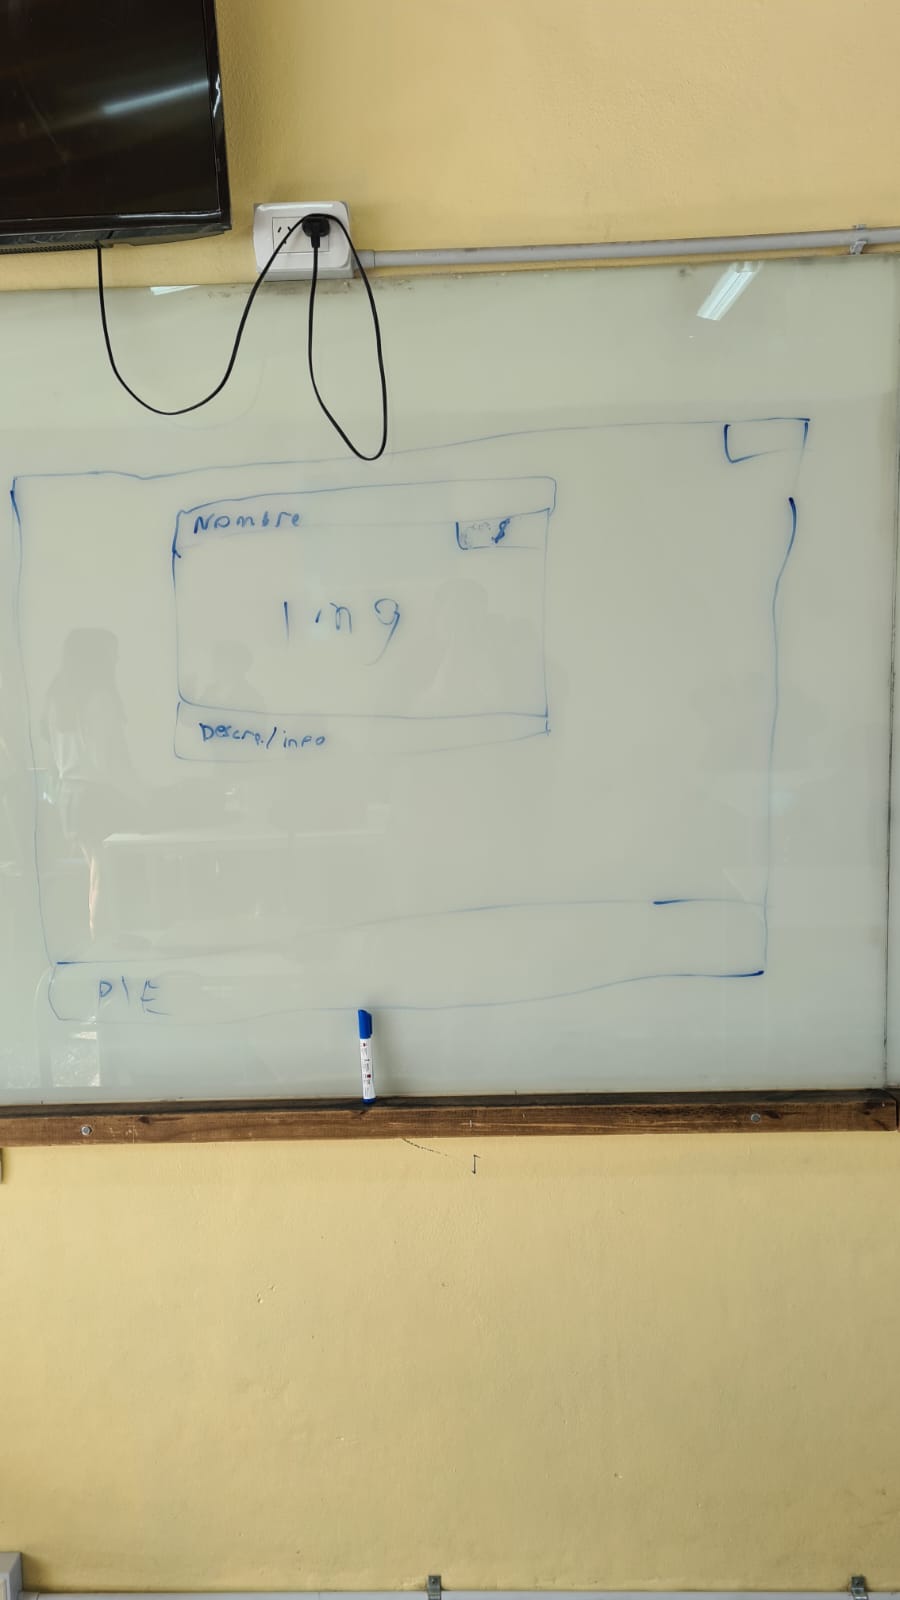 Nombre
$
Img
Descrp/info
PIE